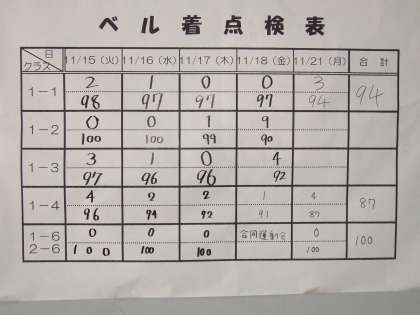 ベル着点検表
日 クラス 11/15 (火) 11/16 (水) 11/17 (木) 11/18 (金) 11/21 (月) 合 計
1-1 2 1 0 0 3 94
98 97 97 97 94
1-2 0 0 1 9
100 100 99 90
1-3 3 1 0 4
97 96 96 92
1-4 4 2 2 1 4 87
96 94 92 91 87
1-6 0 0 0 合同運動会 0 100
2-6 100 100 100 100